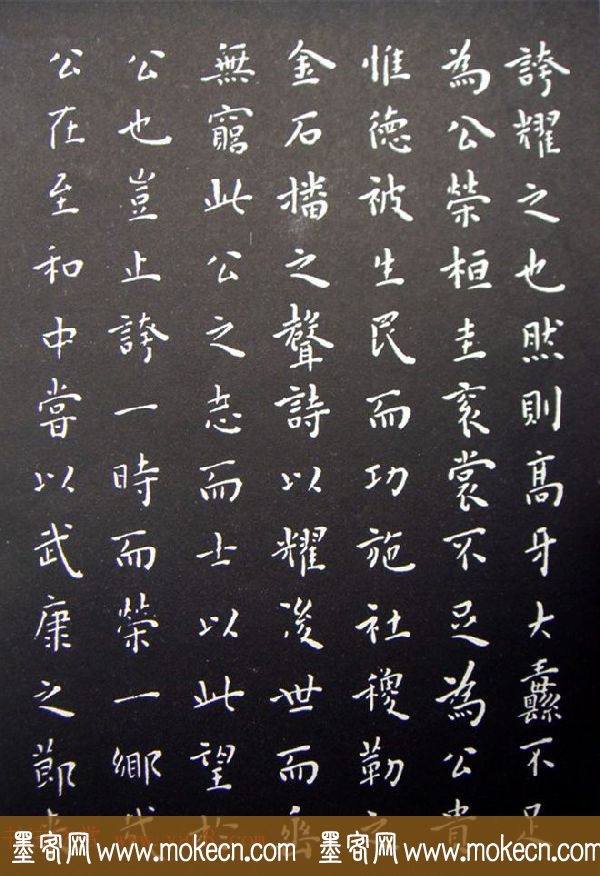 誇耀之也然則高牙大纛不足
為公榮桓圭衮裳不足為公貴
惟德被生民而功施社稷勒之
金石播之聲詩以耀後世而
無窮此公之志而士以此望於
公也豈止誇一時而榮一鄉哉
公在至和中嘗以武康之節
墨客网 www.mokecn.com 墨客网 www.mokecn.com